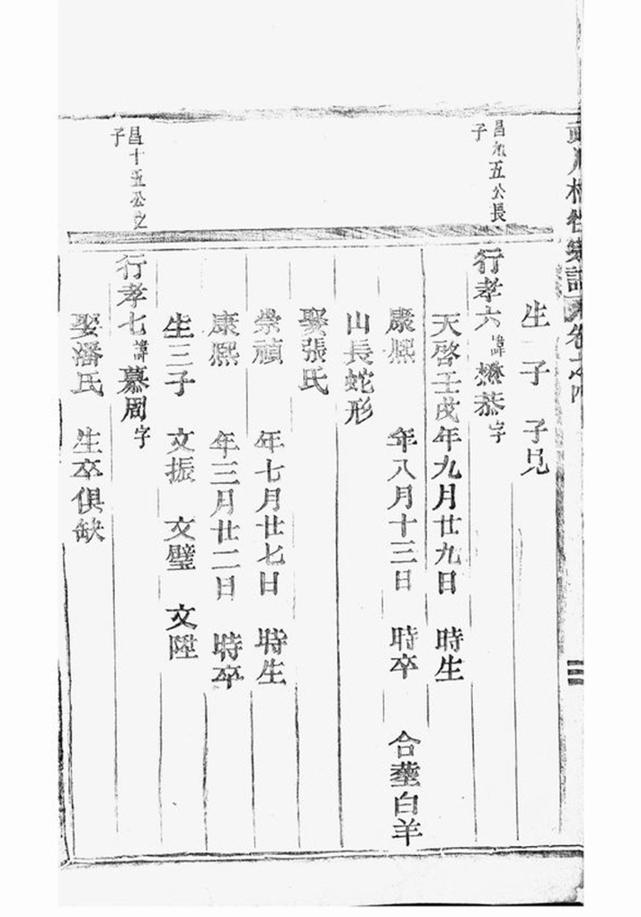 生子 子見
昌九五公長
子
行孝六諱懋恭字
天啓壬戌年九月廿九日 時生
康熙 年八月十三日 時卒 合塟白羊
山長蛇形
娶張氏
崇禎 年七月廿七日 時生
康熙 年三月廿二日 時卒
生三子 文振 文璧 文陞
昌十五公之
子
行孝七諱慕周字
娶潘氏 生卒俱缺